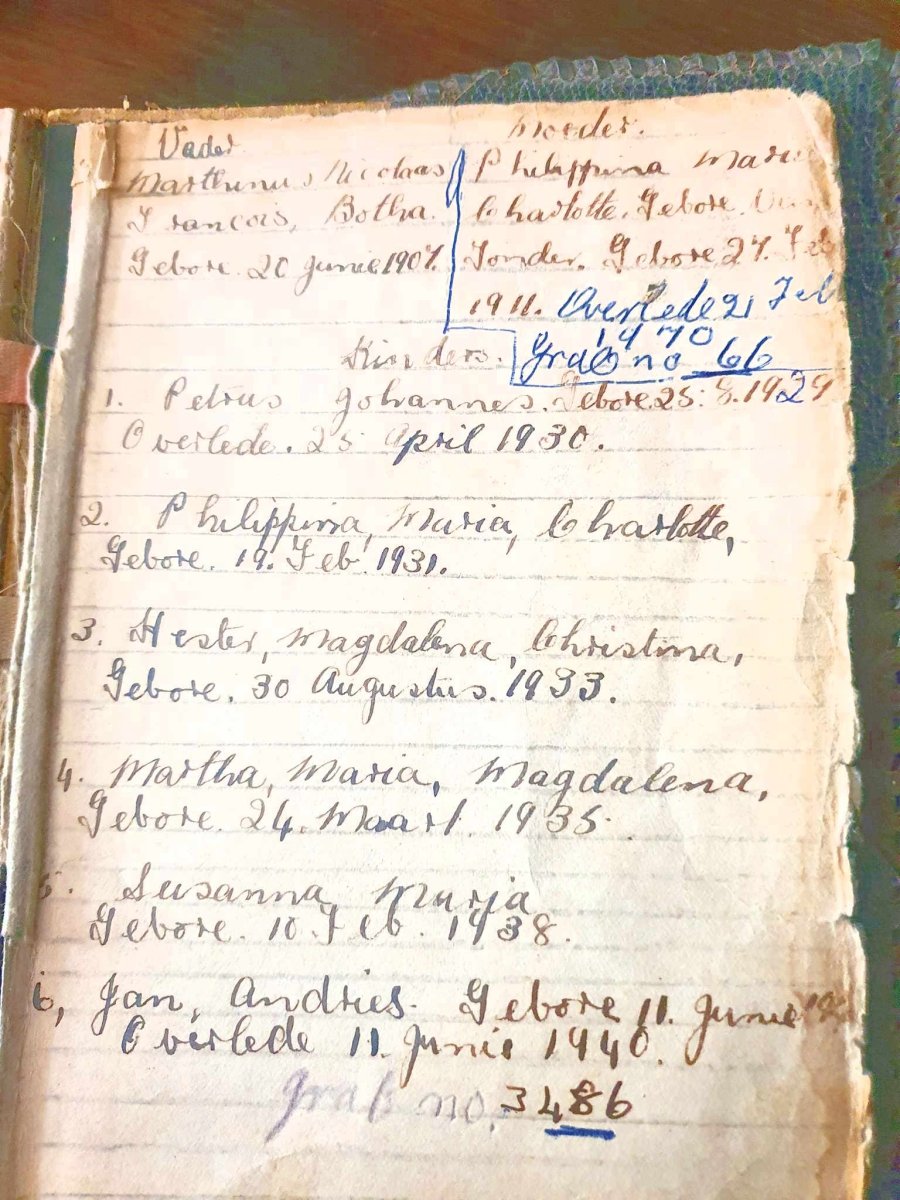 Vader
Marthinus Nicolaas
Francois, Botha.
Gebore. 20 Junie 1907.
Moeder.
Philippina
Charlotte. Gebore.
Tonder. Gebore 27. Feb
1911. Overlede 21 Feb
1970
Grab no 66
Kinders.
1. Petrus Johannes. Gebore. 25. 8. 1929
Overlede. 25 April 1930.
2. Philippina, Maria, Charlotte,
Gebore. 19. Feb. 1931.
3. Hester, Magdalena, Christina,
Gebore. 30 Augustus. 1933.
4. Martha, Maria, Magdalena,
Gebore. 24. Maart. 1935.
5. Susanna Maria
Gebore. 10. Feb. 1938.
6, Jan, Andries. Gebore 11. Junie
Overlede 11. Junie 1940.
Grab no. 3486